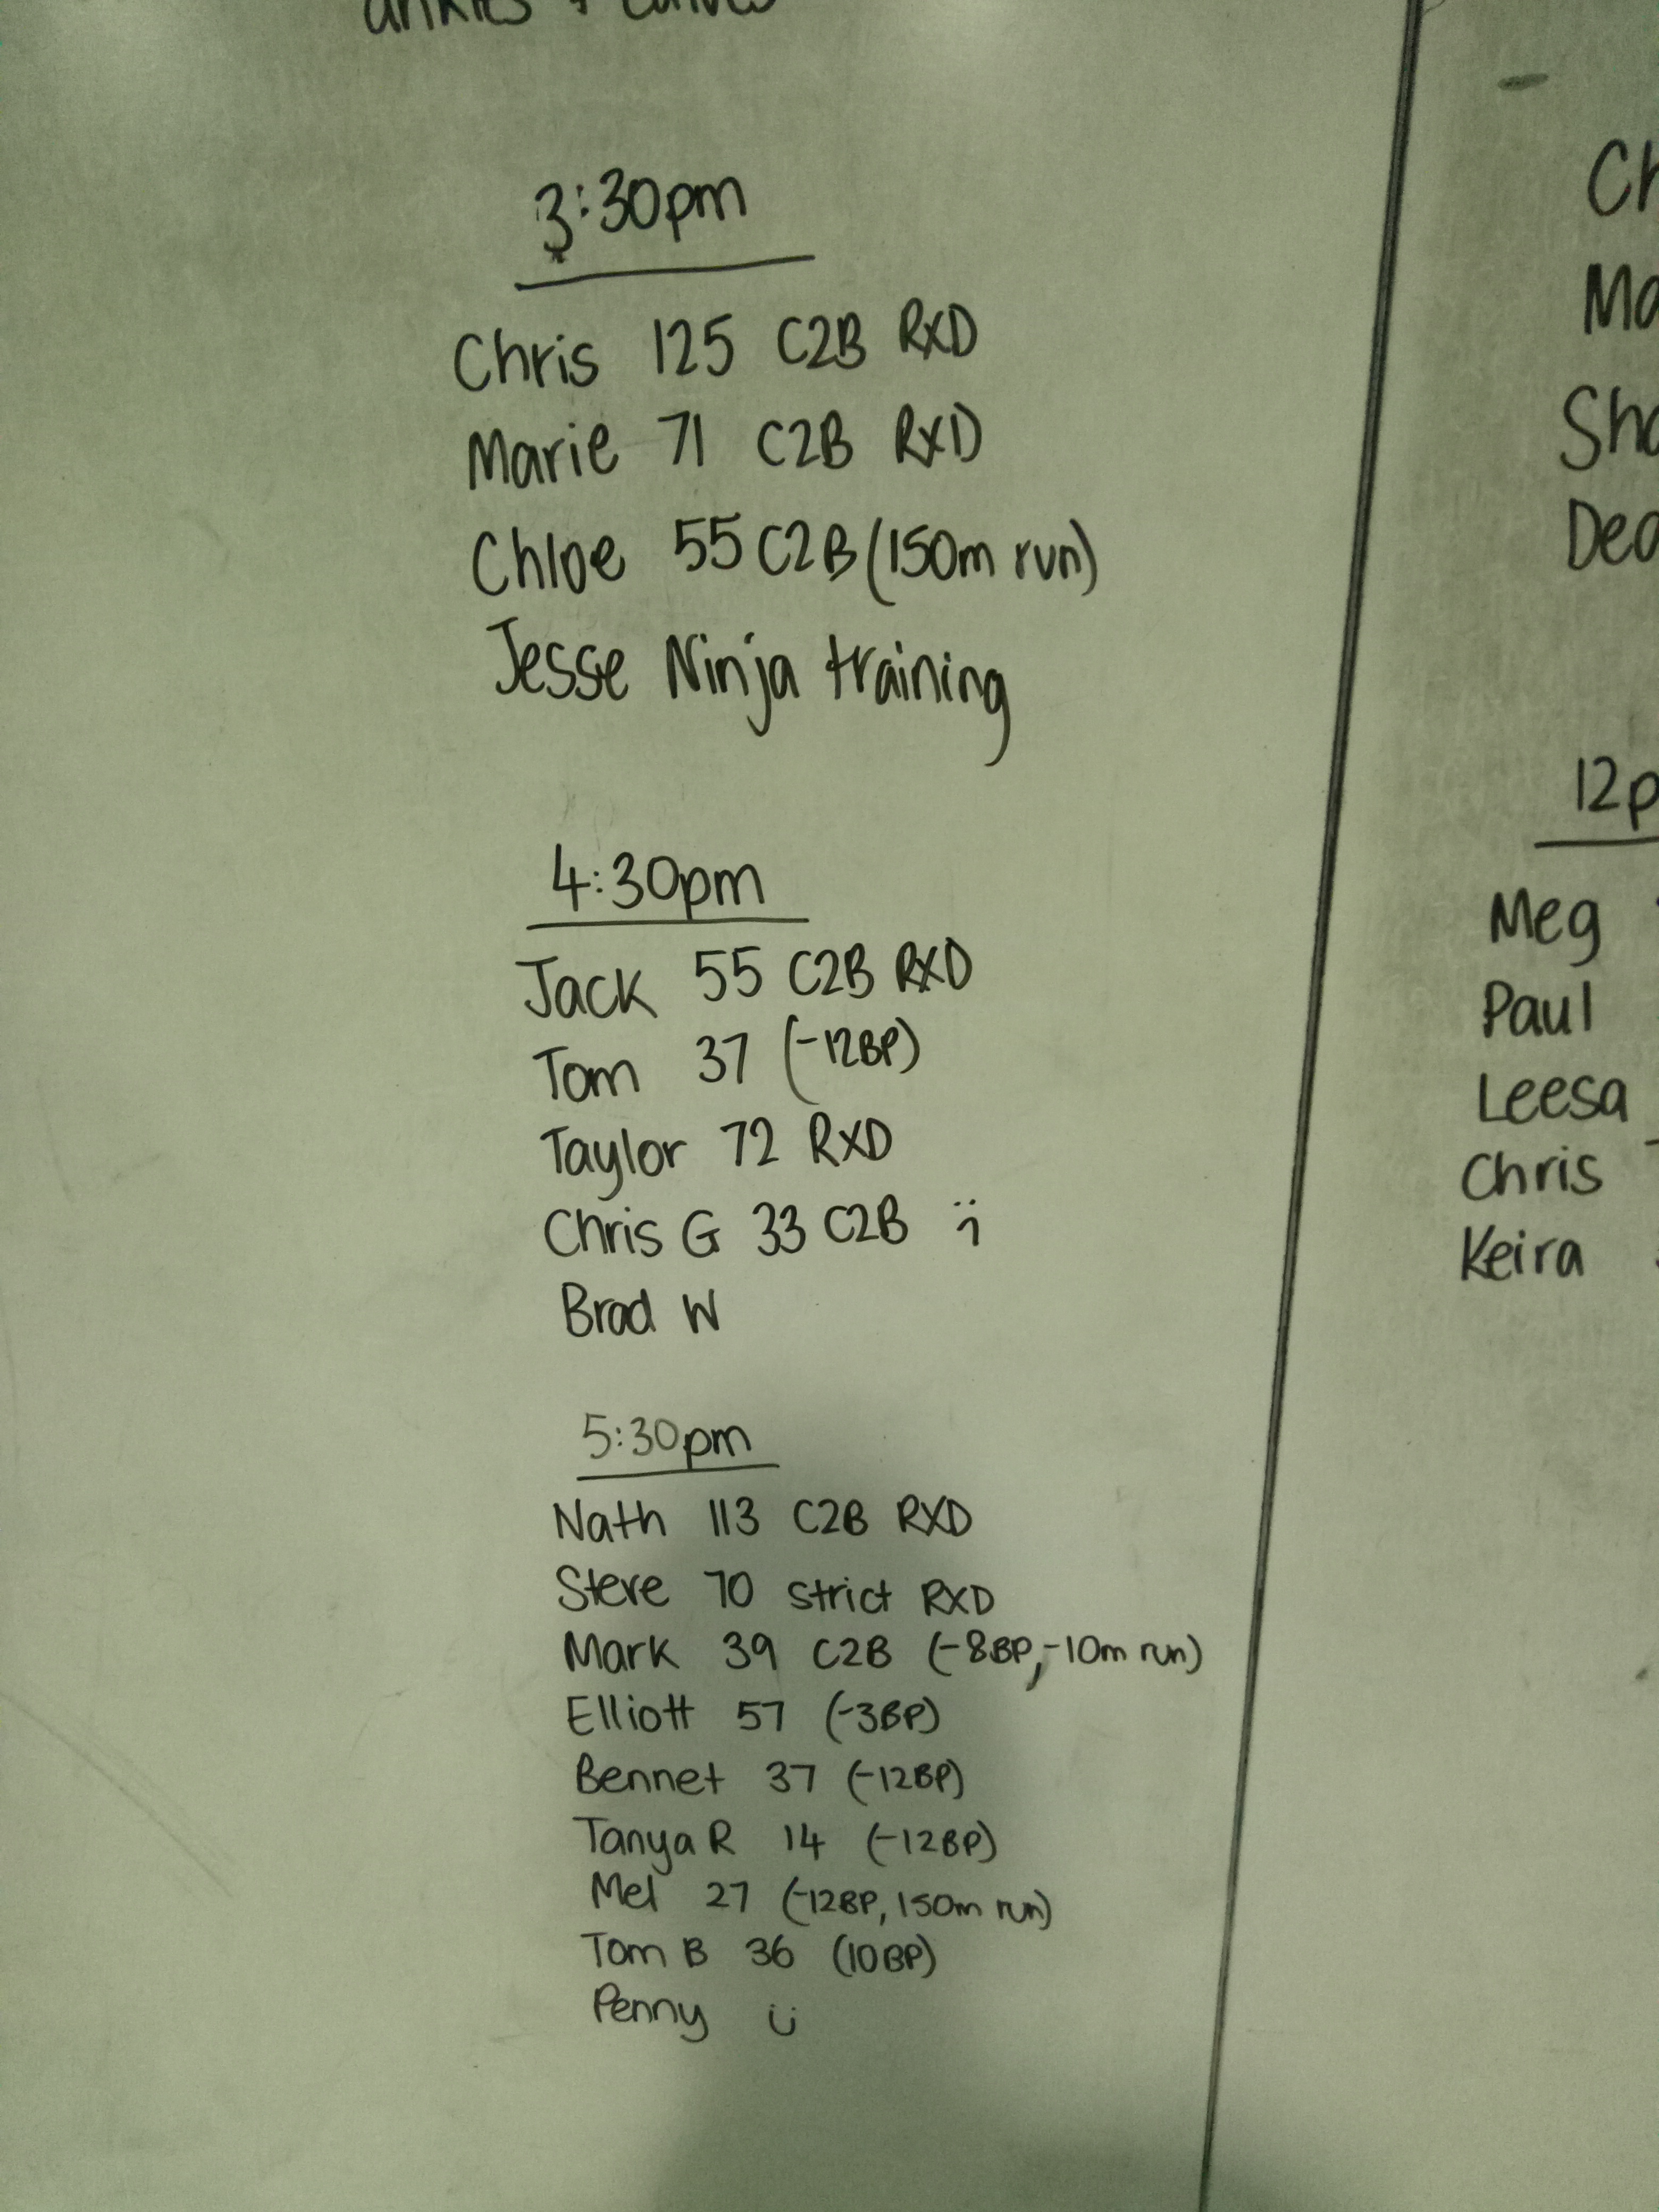 3:30pm
Chris 125 C2B RXD
Marie 71 C2B RXD
Chloe 55 C2B (150m run)
Jesse Ninja training
4:30pm
Jack 55 C2B RXD
Tom 37 (-12BP)
Taylor 72 RXD
Chris G 33 C2B
Brad W
5:30pm
Nath 113 C2B RXD
Steve 70 strict RXD
Mark 39 C2B (-8BP, -10m run)
Elliott 57 (-3BP)
Bennet 37 (-12BP)
Tanya R 14 (-12BP)
Mel 27 (-12BP, 150m run)
Tom B 36 (10BP)
Penny
12p
Meg
Paul
Leesa
Chris
Keira